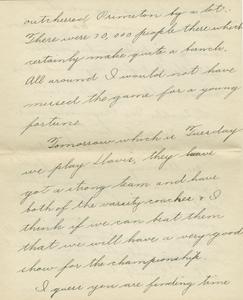 outcheered Princeton by a lot.
There were 30,000 people there which
certainly make quite a bunch.
All around I would not have
missed the game for a young
fortune.
Tomorrow which is Tuesday
we play Slavie, they have
got a strong team and have
both of the varsity coaches & I
think if we can beat them
that we will have a very good
show for the championship.
I guess you are finding time